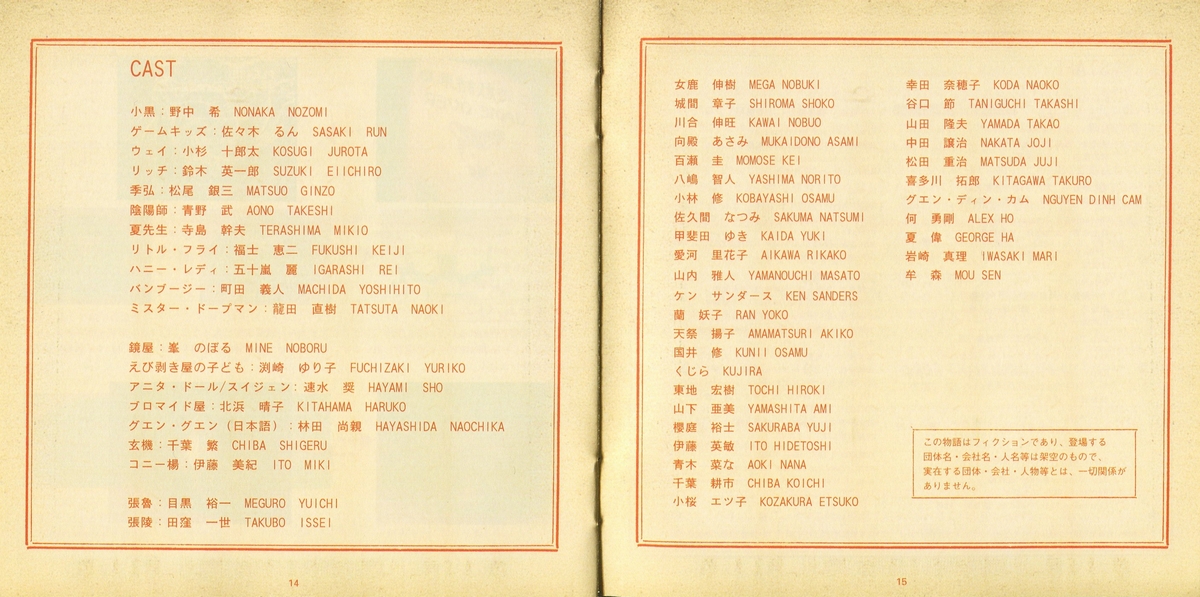 CAST
小黒：野中　希　NONAKA　NOZOMI
ゲームキッズ：佐々木　るん　SASAKI　RUN
ウェイ：小杉　十郎太　KOSUGI　JUROTA
リッチ：鈴木　英一郎　SUZUKI　EIICHIRO
季弘：松尾　銀三　MATSUO　GINZO
陰陽師：青野　武　AONO　TAKESHI
夏先生：寺島　幹夫　TERASHIMA　MIKIO
リトル・フライ：福士　恵二　FUKUSHI　KEIJI
ハニー・レディ：五十嵐　麗　IGARASHI　REI
バンブージー：町田　義人　MACHIDA　YOSHIHITO
ミスター・ドープマン：龍田　直樹　TATSUTA　NAOKI
鏡屋：峯　のぼる　MINE　NOBORU
えび剥き屋の子ども：渕崎　ゆり子　FUCHIZAKI　YURIKO
アニタ・ドール/スイジェン：速水　奨　HAYAMI　SHO
ブロマイド屋：北浜　晴子　KITAHAMA　HARUKO
グエン・グエン（日本語）：林田　尚親　HAYASHIDA　NAOCHIKA
玄機：千葉　繁　CHIBA　SHIGERU
コニー楊：伊藤　美紀　ITO　MIKI
張魯：目黒　裕一　MEGURO　YUICHI
張陵：田窪　一世　TAKUBO　ISSEI
14
女鹿　伸樹　MEGA NOBUKI
城間　章子　SHIROMA SHOKO
川合　伸旺　KAWAI NOBUO
向殿　あさみ　MUKAIDONO ASAMI
百瀬　圭　MOMOSE KEI
八嶋　智人　YASHIMA NORITO
小林　修　KOBAYASHI OSAMU
佐久間　なつみ　SAKUMA NATSUMI
甲斐田　ゆき　KAIDA YUKI
愛河　里花子　AIKAWA RIKAKO
山内　雅人　YAMANOUCHI MASATO
ケン　サンダース　KEN SANDERS
蘭　妖子　RAN YOKO
天祭　揚子　AMAMATSURI AKIKO
国井　修　KUNII OSAMU
くじら　KUJIRA
東地　宏樹　TOCHI HIROKI
山下　亜美　YAMASHITA AMI
櫻庭　裕士　SAKURABA YUJI
伊藤　英敏　ITO HIDETOSHI
青木　菜な　AOKI NANA
千葉　耕市　CHIBA KOICHI
小桜　エツ子　KOZAKURA ETSUKO
幸田　奈穂子　KODA NAOKO
谷口　節　TANIGUCHI TAKASHI
山田　隆夫　YAMADA TAKAO
中田　譲治　NAKATA JOJI
松田　重治　MATSUDA JUJI
喜多川　拓郎　KITAGAWA TAKURO
グエン・ディン・カム　NGUYEN DINH CAM
何　勇剛　ALEX HO
夏　偉　GEORGE HA
岩崎　真理　IWASAKI MARI
牟　森　MOU SEN
この物語はフィクションであり、登場する
団体名・会社名・人名等は架空のもので、
実在する団体・会社・人物等とは、一切関係が
ありません。
15